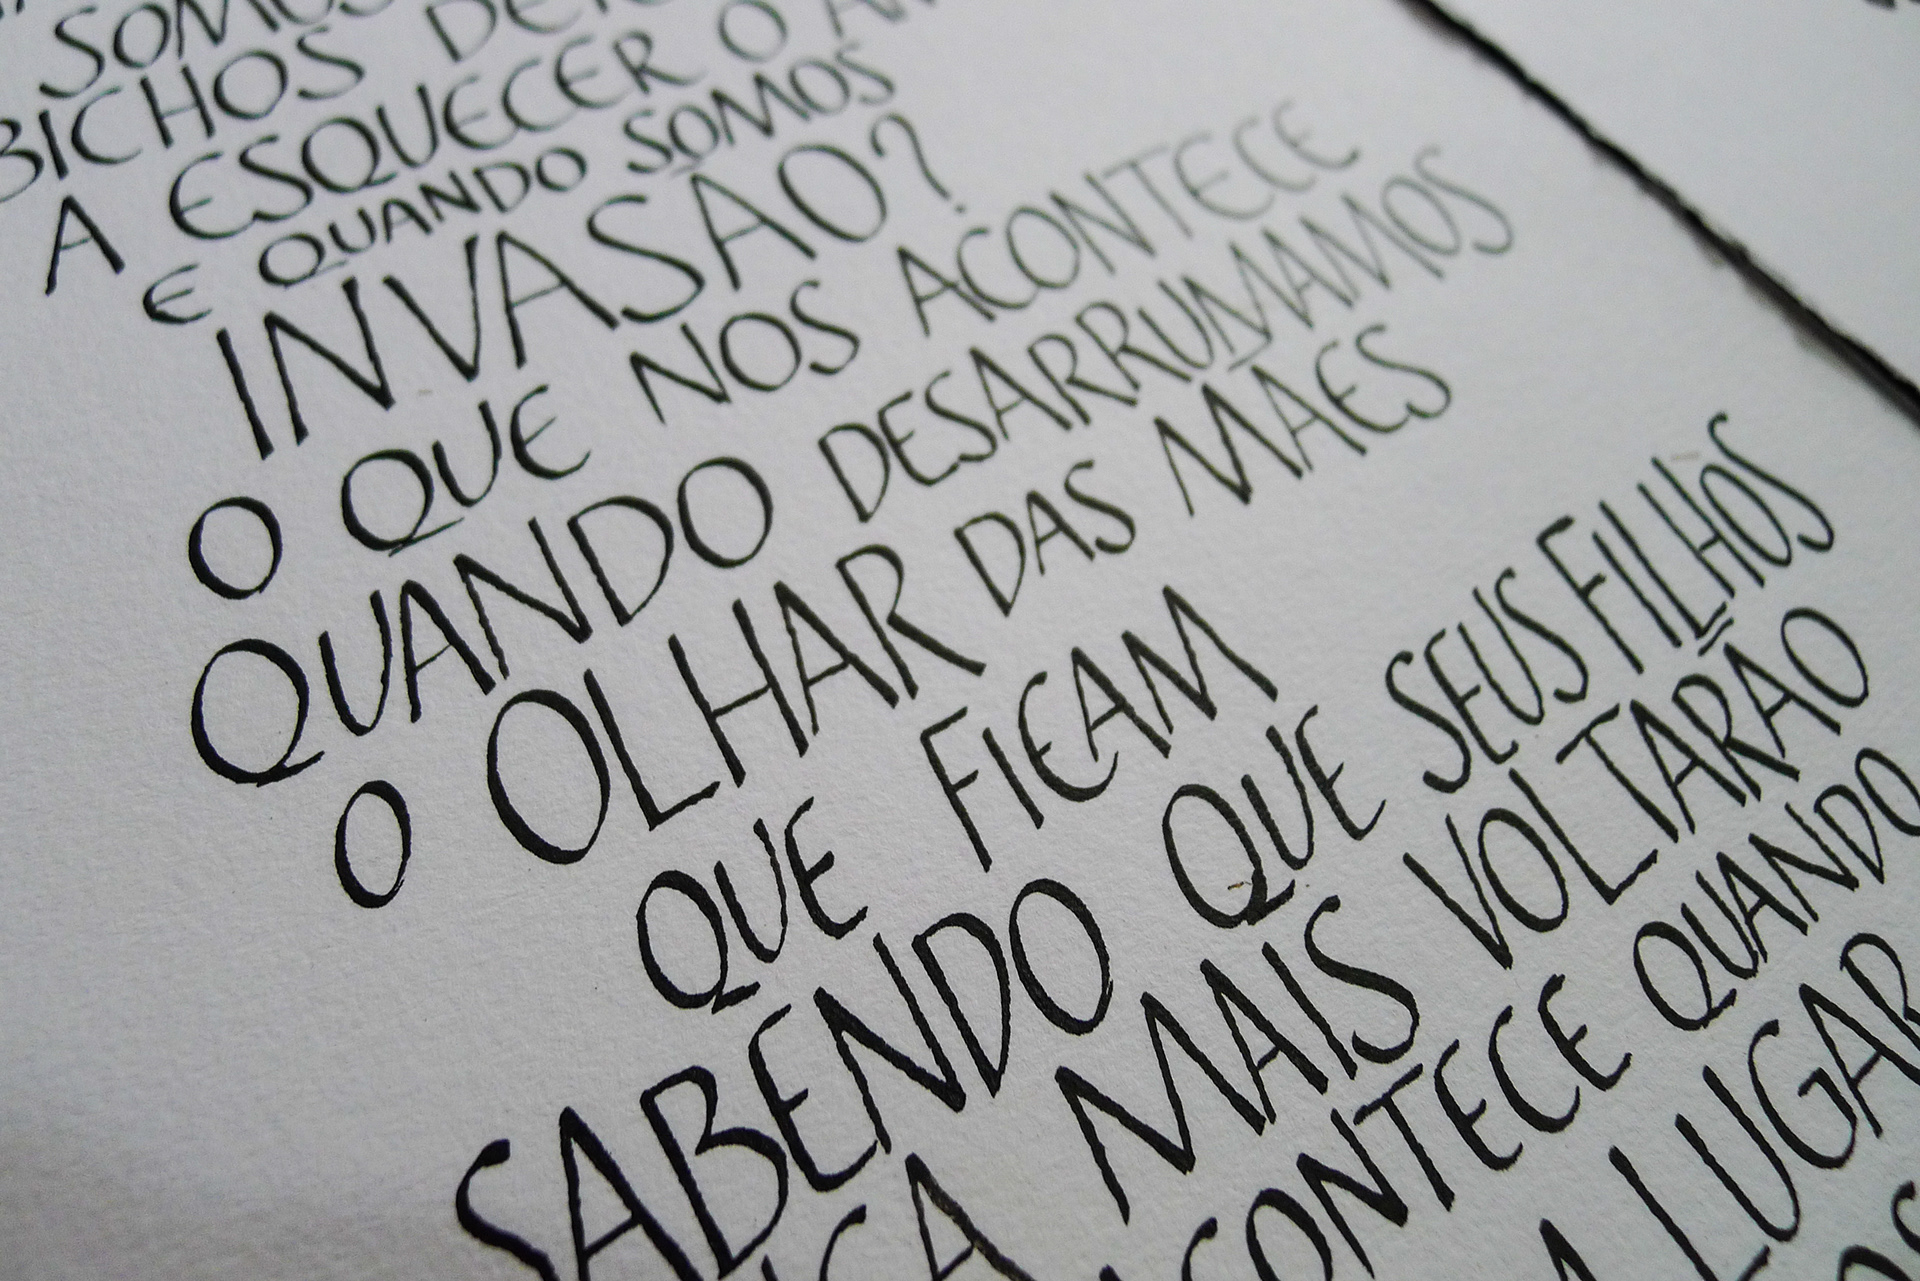 SOMOS
BICHOS
A ESQUECER O
E QUANDO SOMOS
INVASÃO?
O QUE NOS ACONTECE
QUANDO DESARRUMAMOS
O OLHAR DAS MÃES
QUE FICAM
SABENDO QUE SEUS FILHOS
MAIS VOLTARÃO
ACONTECE QUANDO
A LUGAR